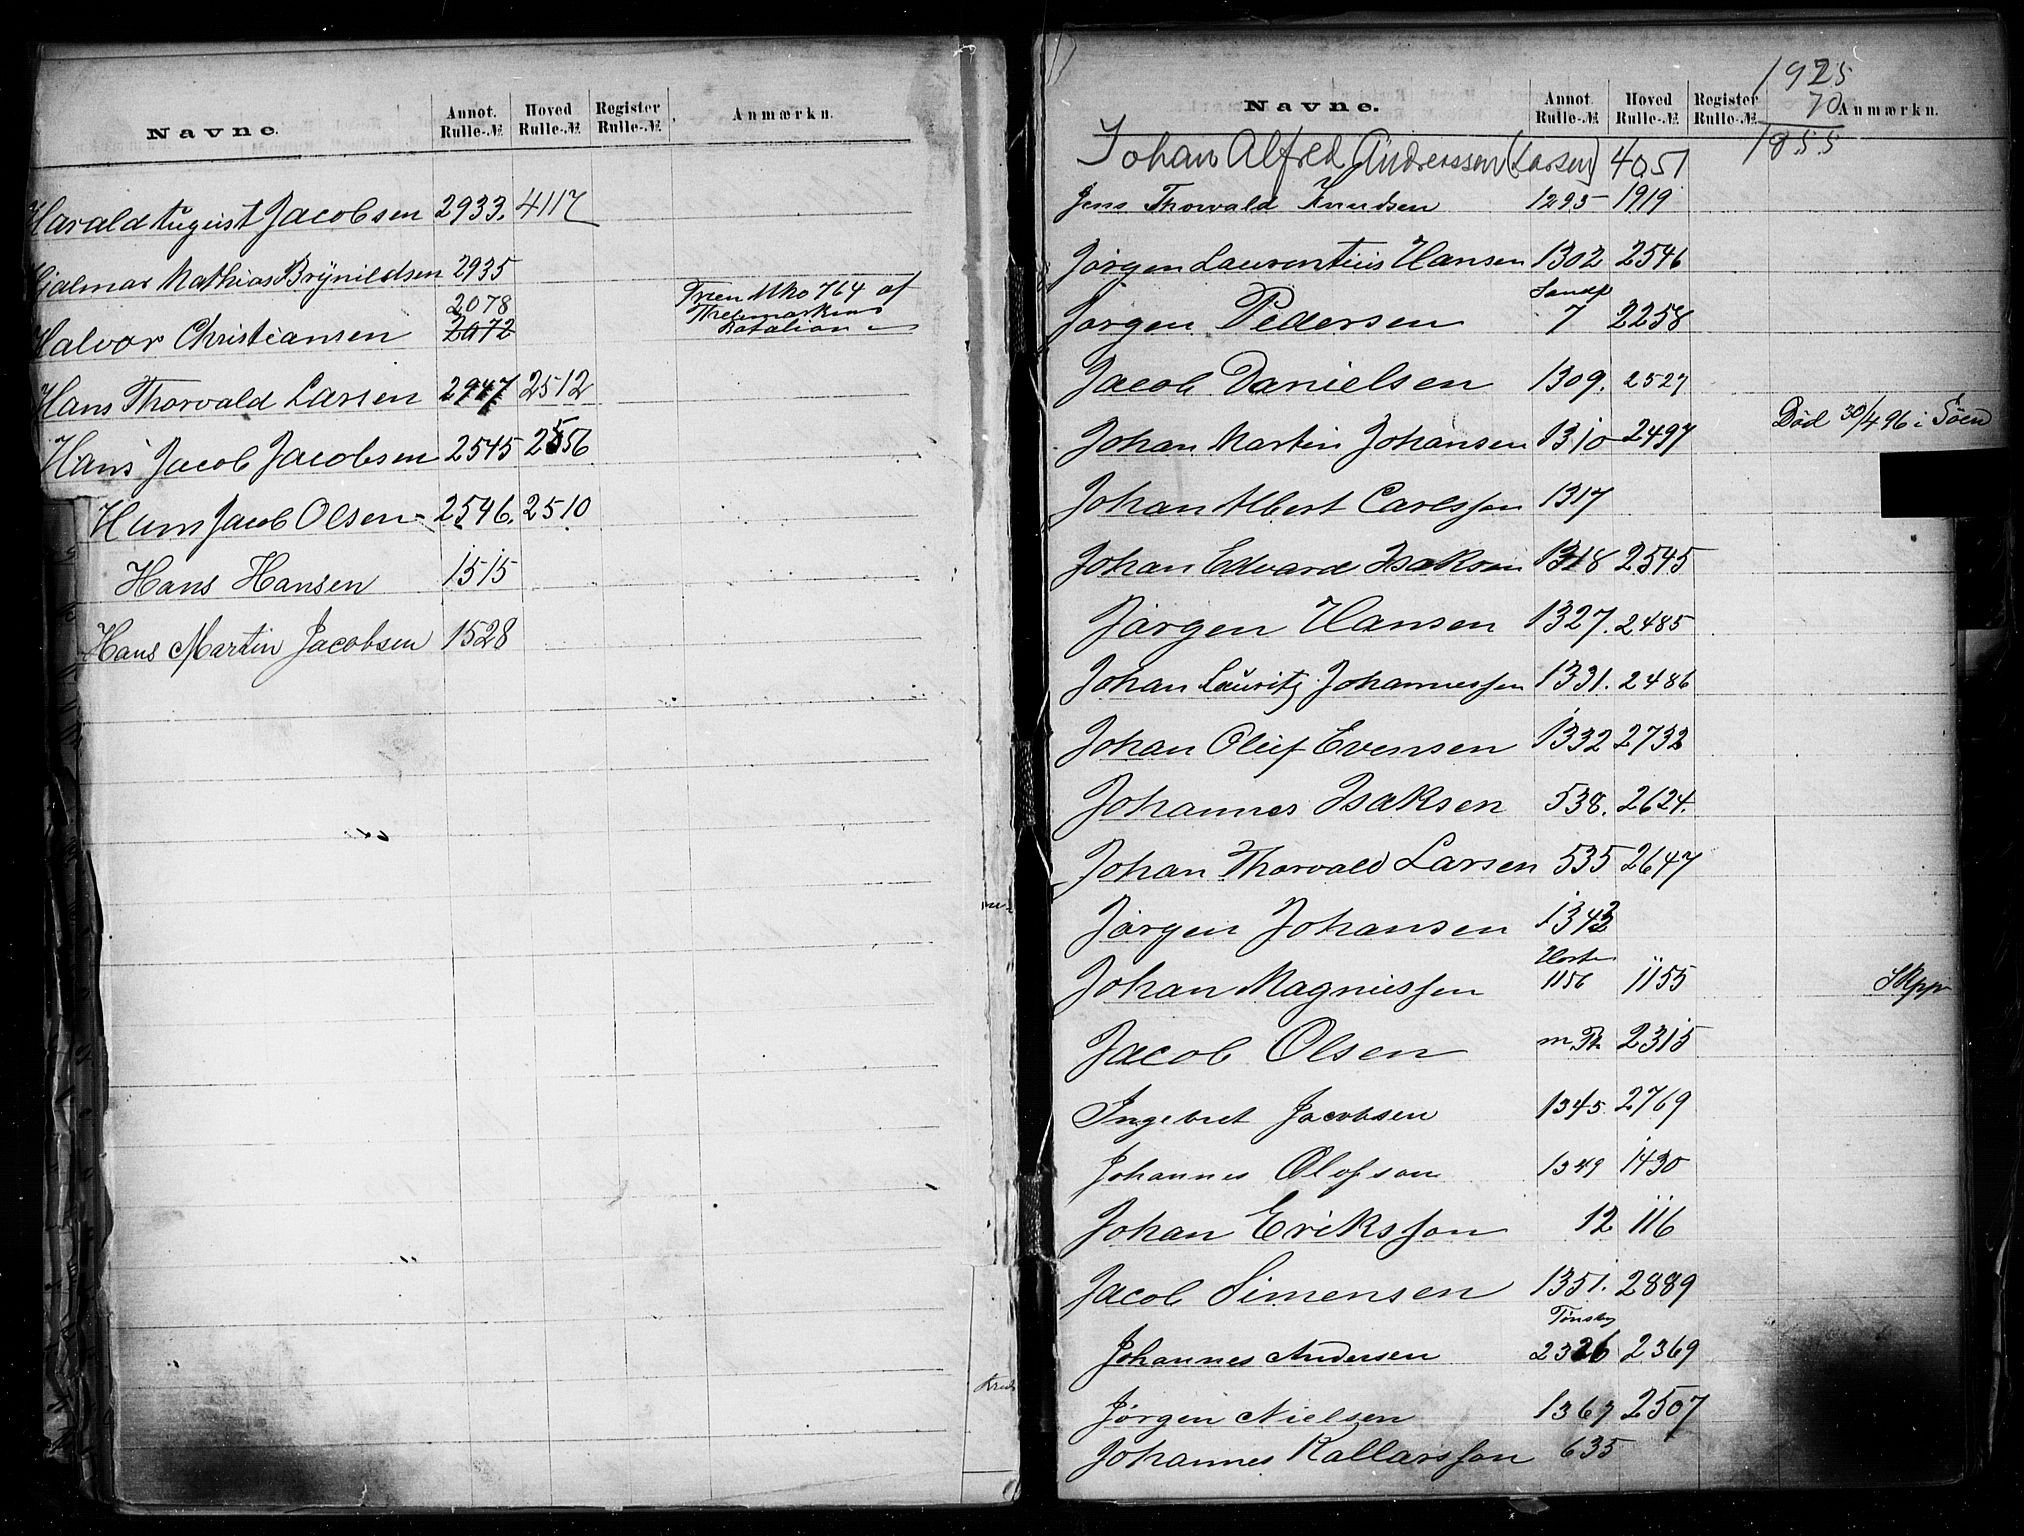 Navne. Annot. Rulle-№ Hoved Rulle-№ Register Rulle-№ Anmærkn.
Harald August Jacobsen 2933. 4117
Hjalmar Mathias Brynildsen 2935
Halvor Christiansen 2078 2072 Treen Mko 764 af
Thelemarkens
Batalion
Hans Thorvald Larsen 2947 2512
Hans Jacob Jacobsen 2545 2556
Hans Jacob Olsen 2546. 2510
Hans Hansen 1515
Hans Martin Jacobsen 1528
1925
70
1855
Navne. Annot. Rulle-№ Hoved Rulle-№ Register Rulle-№ Anmærkn.
Johan Alfred Andreassen (Larsen) 4051
Jens Thorvald Knudsen 1295 1919
Jørgen Laurentius Hansen 1302 2546
Jørgen Pedersen Sandf 7 2258
Jacob Danielsen 1309. 2527
Johan Martin Johansen 1310 2497 Død 30/4 96 i Søen
Johan Albert Carlsson 1317
Johan Edvard Isaksen 1318 2545
Jørgen Hansen 1327. 2485
Johan Lauritz Johannessen 1331. 2486
Johan Oluf Evensen 1332 2732
Johannes Isaksen 538. 2624.
Johan Thorvald Larsen 535 2647
Jørgen Johansen 1343
Johan Magnussen 1156 1155
Jacob Olsen 2315
Ingebret Jacobsen 1345. 2769
Johannes Olofson 1349 1430
Johan Eriksson 12 116
Jacob Simensen 1351. 2889
Johannes Andersen Tønsby 2326 2369
Jørgen Nielsen 1367 2507
Johannes Kallarsson 635